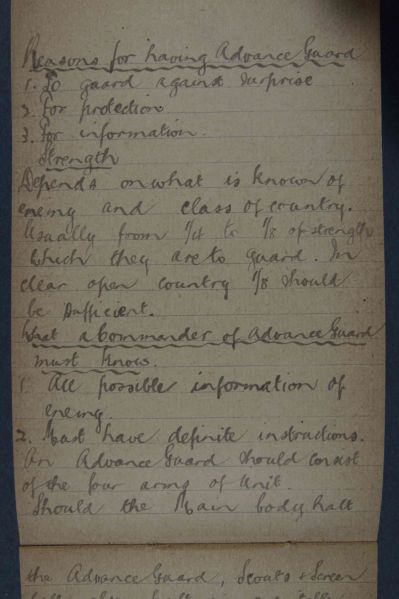 Reasons for having Advance Guard
1. To guard against surprise
2. For protection
3. For information.
Strength
Depends on what is known of
enemy and class of country.
Usually from 1/4 to 1/8 of strength
which they are to guard. In
clear open country 1/8 should
be sufficient.
What a Commander of Advance Guard
must know.
1. All possible information of
enemy.
2. Must have definite instructions.
An Advance Guard should consist
of the four arms of Unit.
Should the Main body halt
the Advance Guard, Scouts & Screen